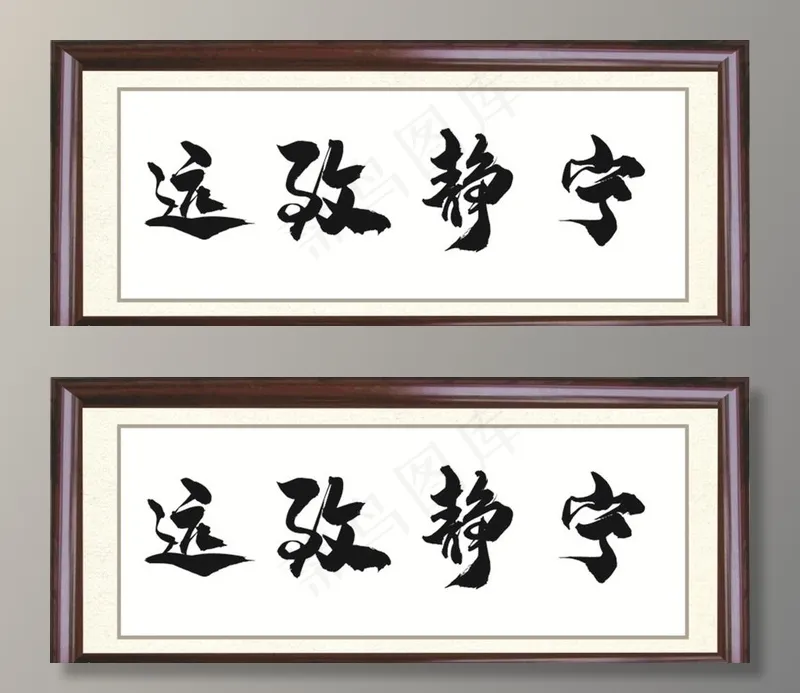 宁静致远
宁静致远